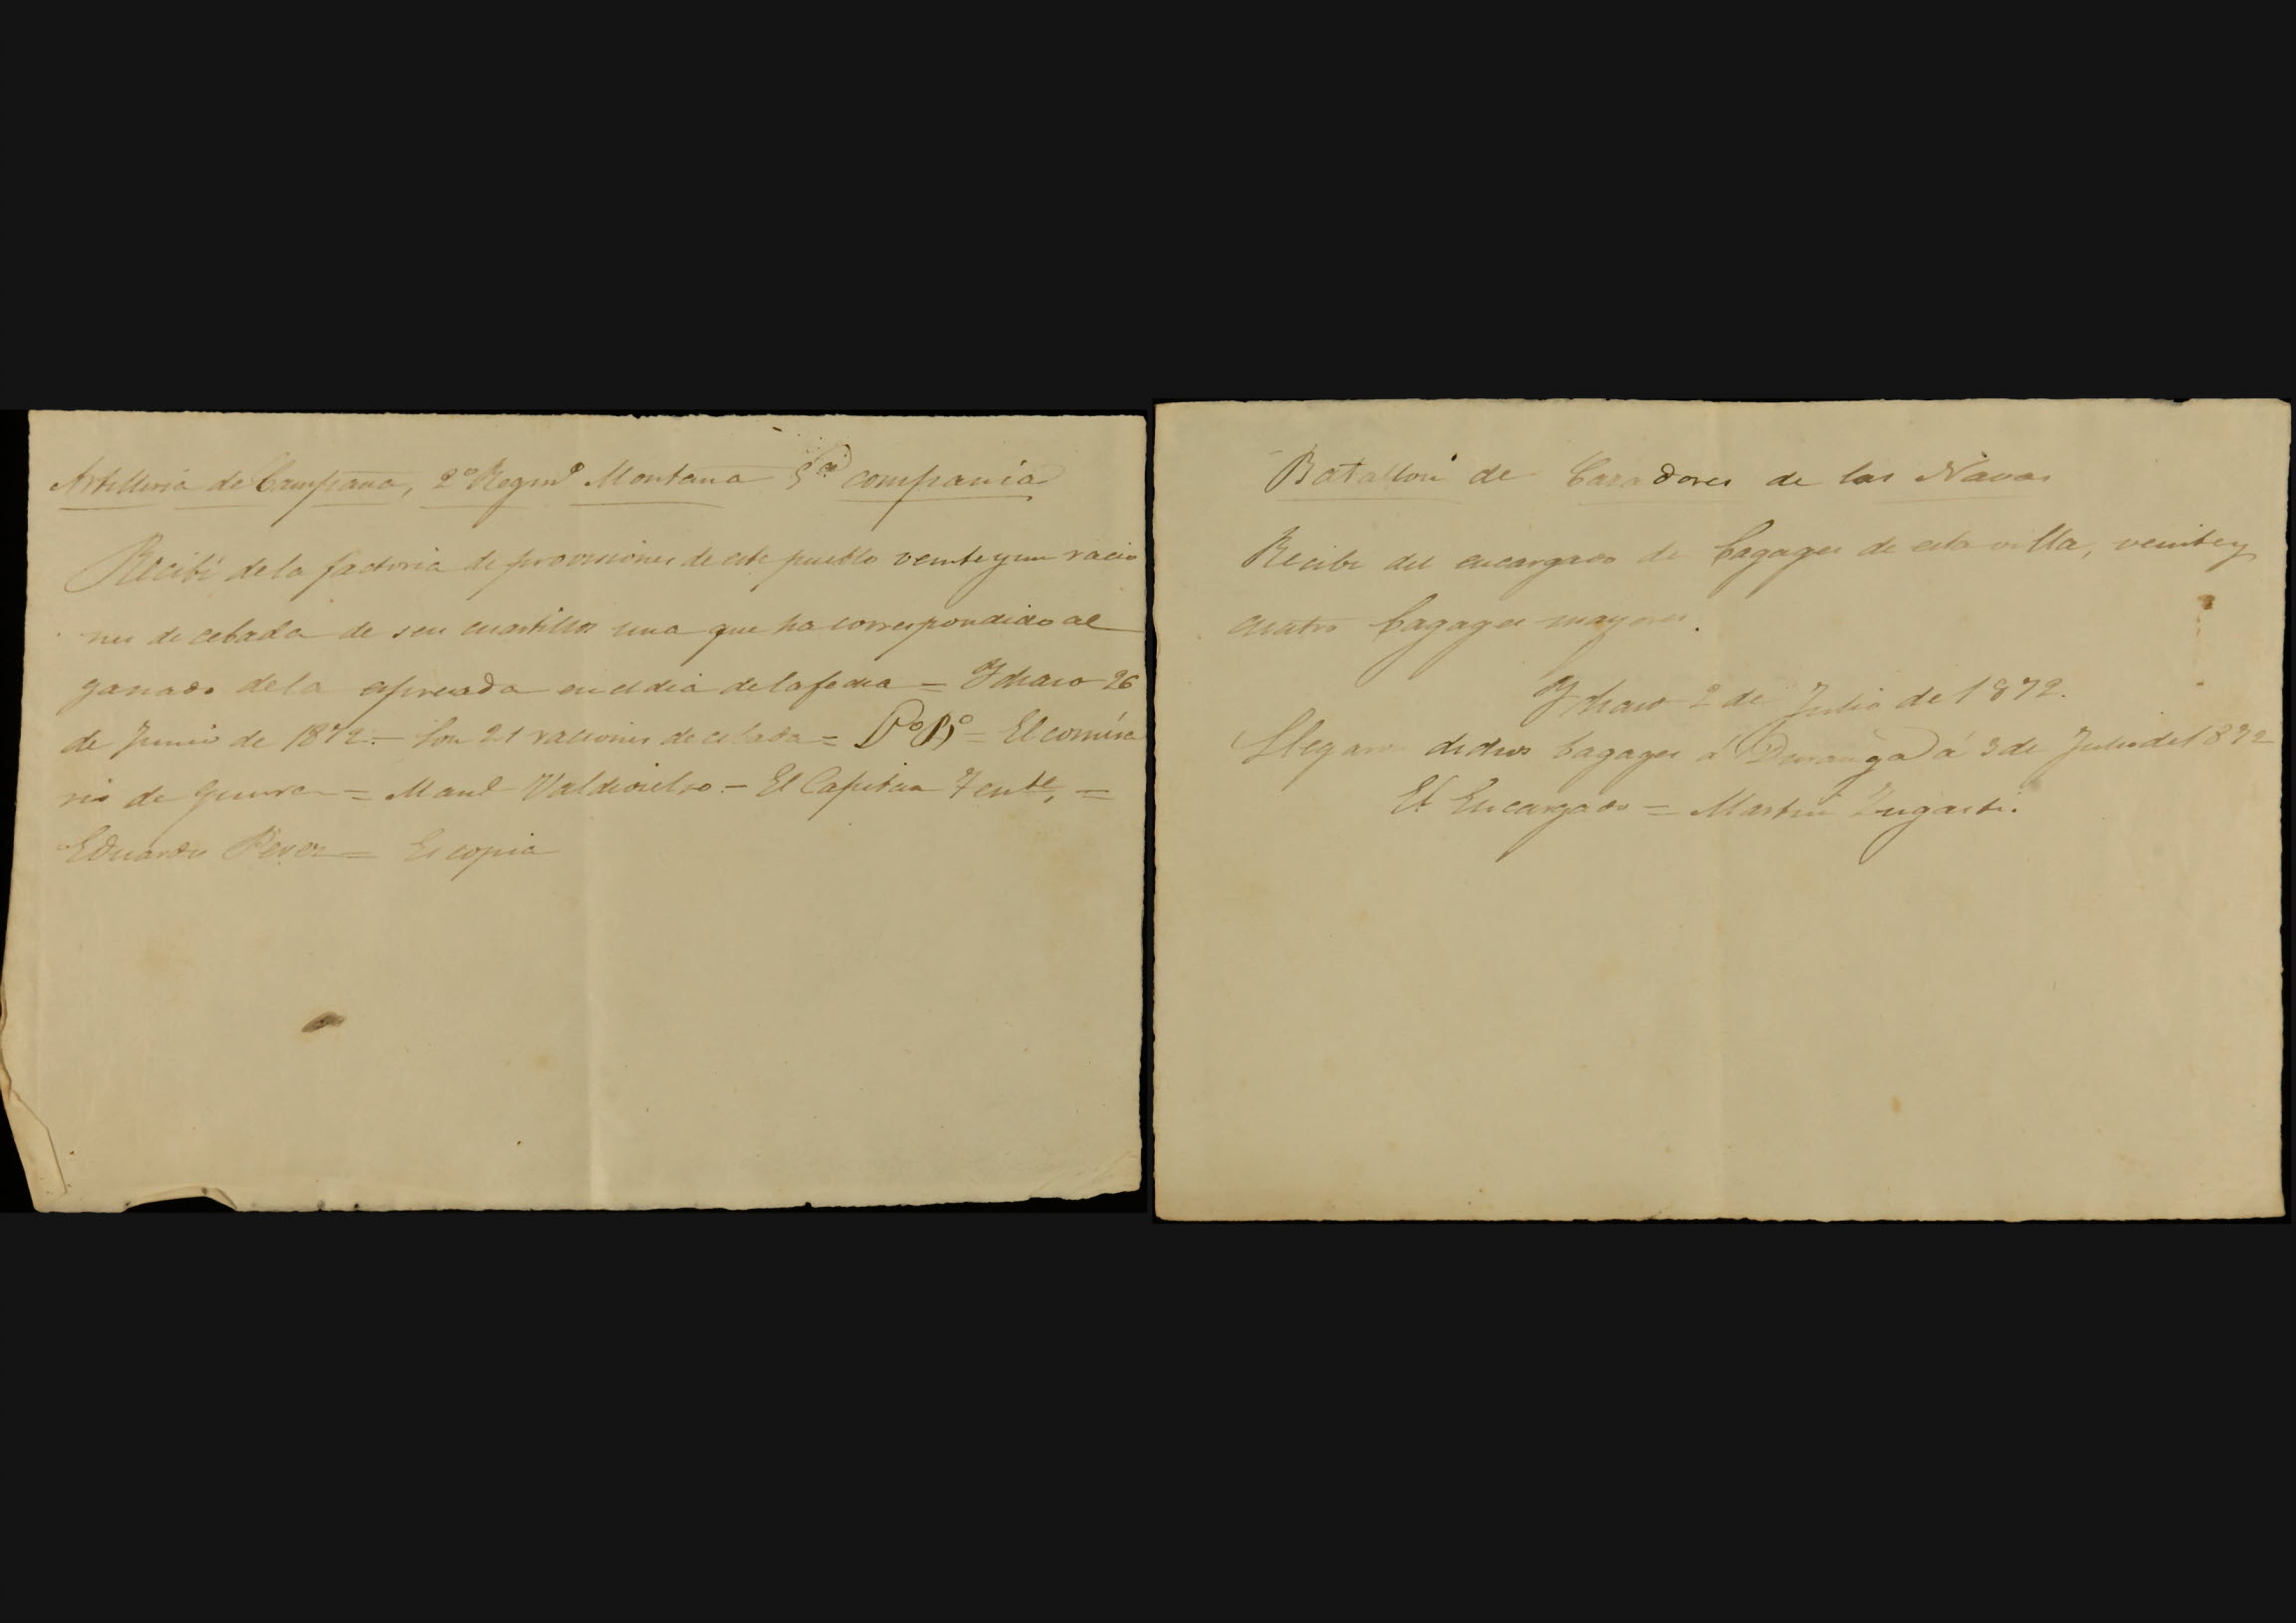 Artilleria de Campaña, 2º Regmto Montaña 5ª compania
Recibi de la factoria de provisiones de este pueblo veinte y un racio
nes de cebada de seis cuartillos una que ha correspondido al
ganado de la espresada en el dia de la fecha = Ydiaso 26
de Junio de 1872. = Son 21 raciones de cebada = Vº Bº = El comisa
rio de guerra = Manl Valdivielso. = El Capitan Tente, =
Eduardo Perez = Es copia
Batallon de Cazadores de las Navas
Recibi del encargado de bagages de esta villa, veinte y
cuatro bagages mayores.
2 de Julio de 1872.
Llegaron dichos bagages á Durango á 3 de Julio de 1872
El Encargado = Martin Zugasti.